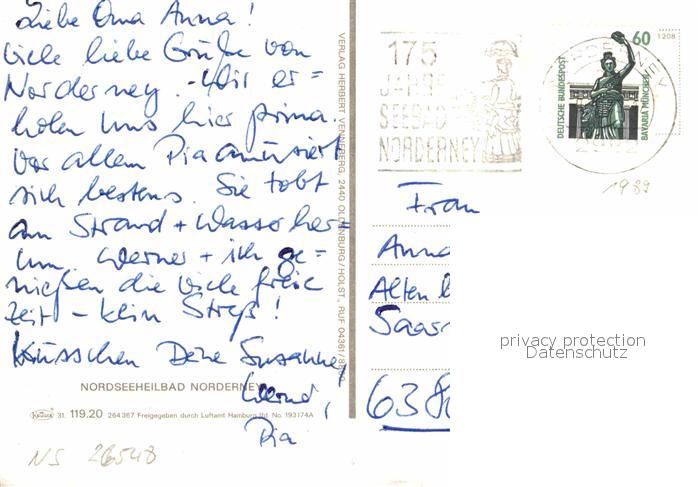 Liebe Oma Anna!
viele liebe Grüße von
Norderney. - Wir er=
holen uns hier prima.
Vor allem Pia amüsiert
sich bestens. Sie tobt
am Strand + Wasser her=
um. Werner + ich ge=
nießen die viele freie
Zeit - kein Streß!
Küsschen Deine Susanne,
Pia
NORDSEEHEILBAD NORDERNEY
Krüger 31. 119.20 264367 Freigegeben durch Luftamt Hamburg lfd. No. 193174A
NS 26548
VERLAG HERBERT VENNEBERG, 2440 OLDENBURG/HOLST., RUF 04361/
175
JAHRE
SEEBAD
NORDERNEY
NORDERNEY
60
1208
DEUTSCHE BUNDESPOST
BAVARIA MÜNCHEN
1989
Frau
Anna
Alten
Saar
638
privacy protection
Datenschutz